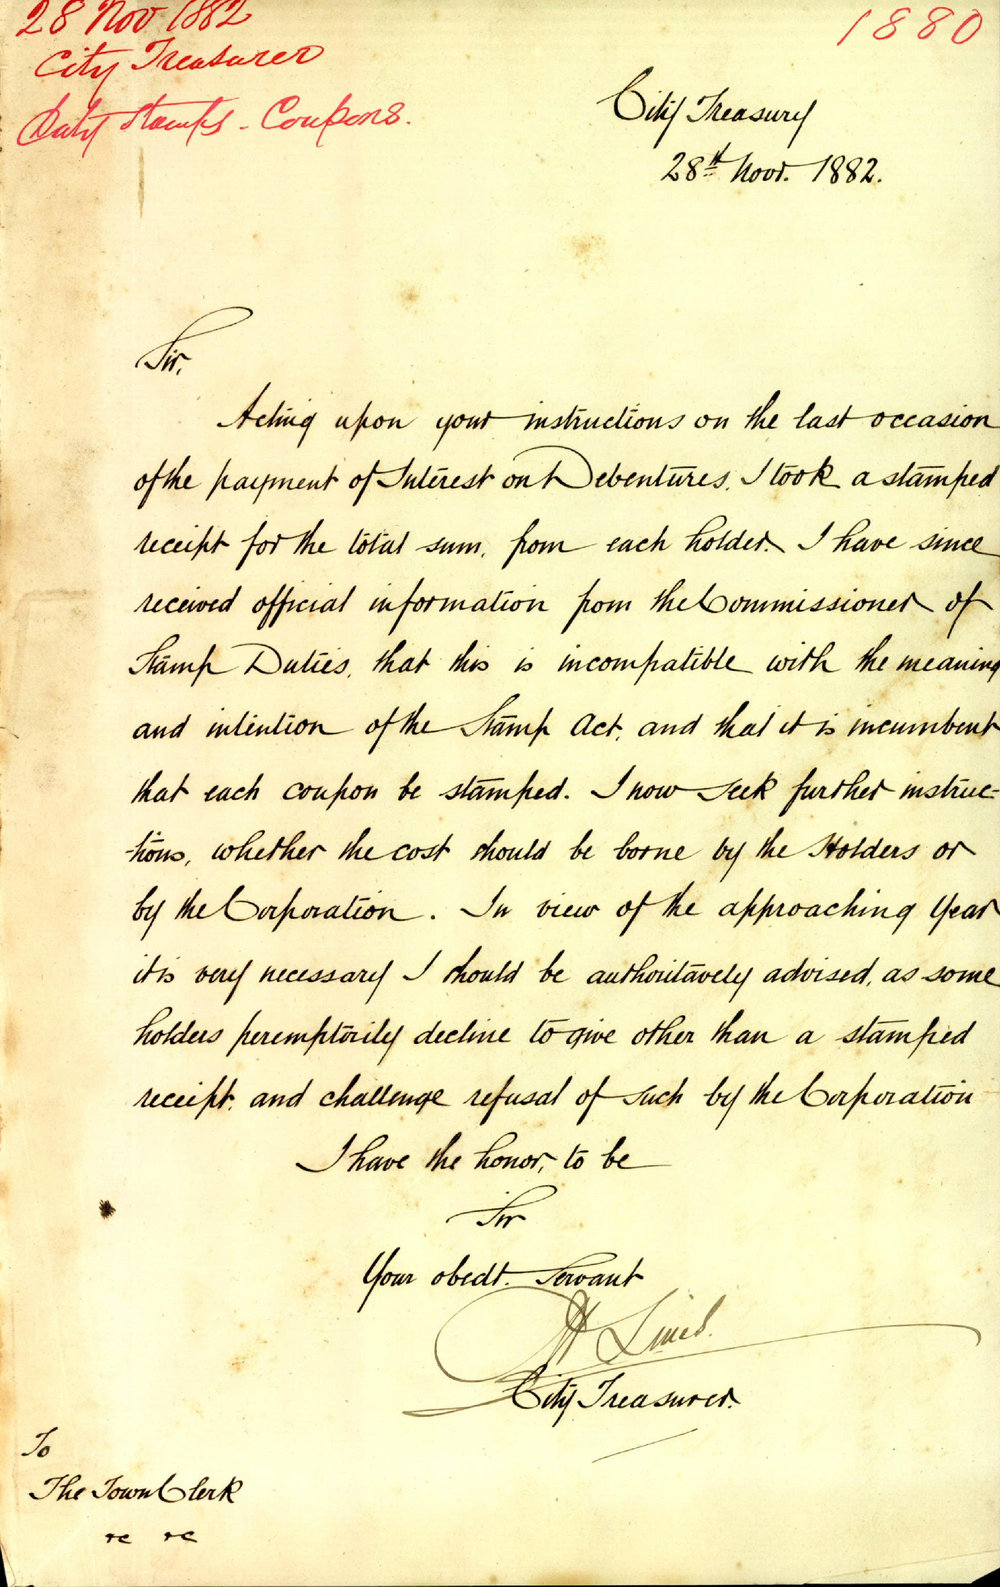 28 Nov 1882
City Treasurer
Duty Stamps - Coupons.
1880
City Treasury
28th Novr. 1882.
Sir,
Acting upon your instructions on the last occasion
of the payment of Interest on Debentures, I took a stamped
receipt for the total sum, from each holder. I have since
received official information from the Commissioner of
Stamp Duties, that this is incompatible with the meaning
and intention of the Stamp Act, and that it is incumbent
that each coupon be stamped. I now seek further instruc-
-tions, whether the cost should be borne by the Holders or
by the Corporation. In view of the approaching Year
it is very necessary I should be authoritavely advised, as some
holders peremptorily decline to give other than a stamped
receipt, and challenge refusal of such by the Corporation
I have the honor, to be
Sir
Your obedt. Servant
City Treasurer.
To
The Town Clerk
&c &c